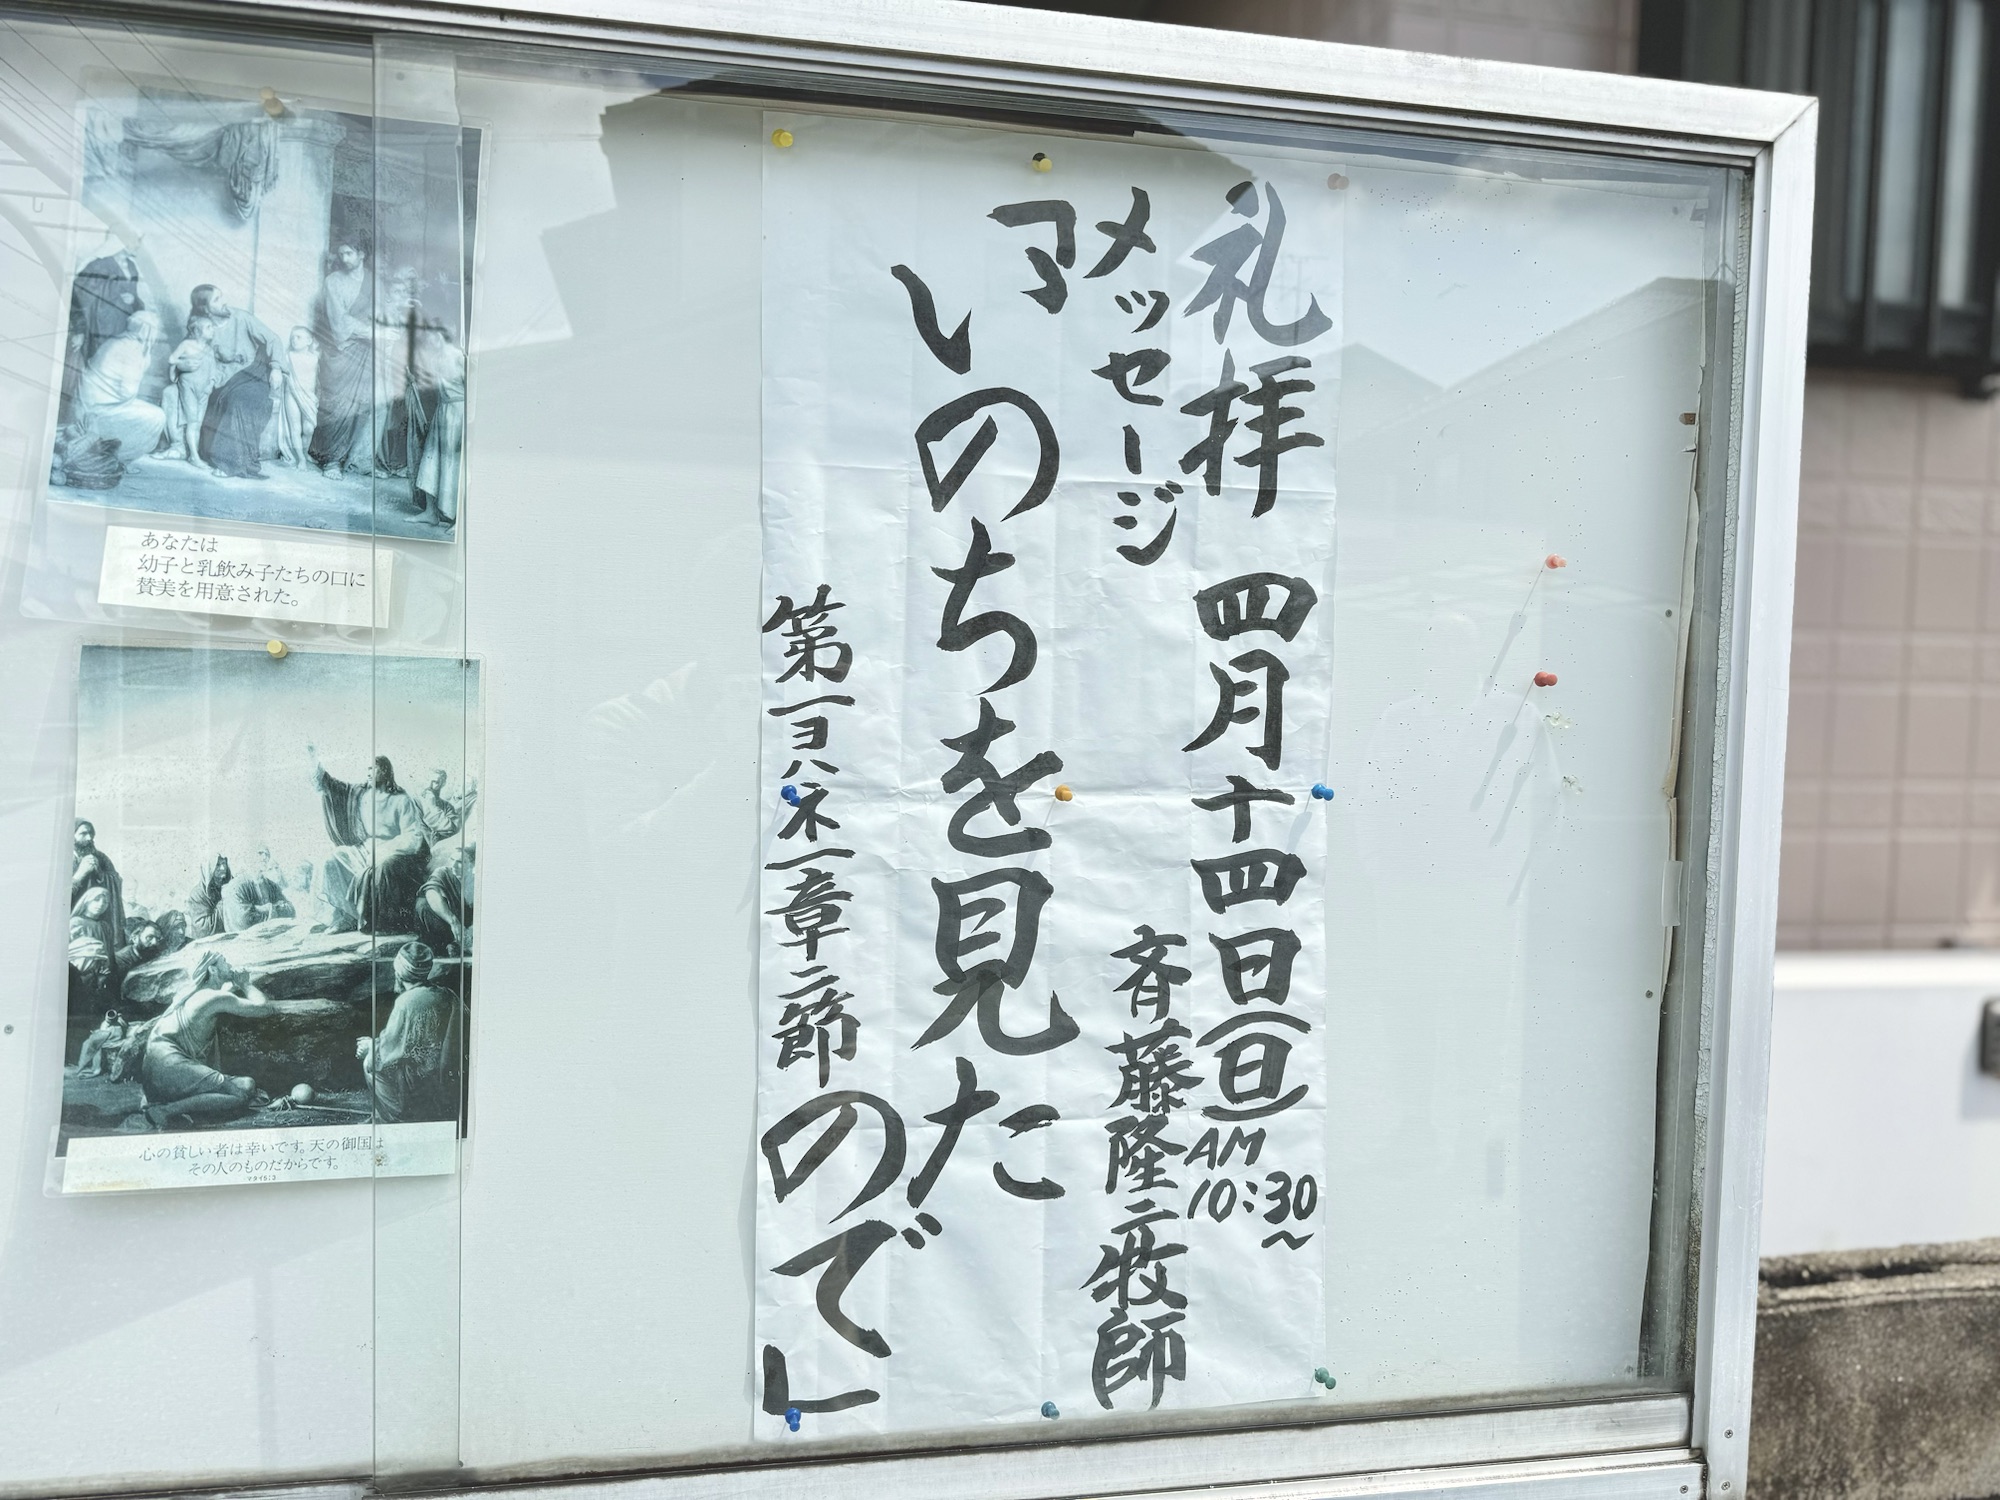 礼拝 四月十四日(日) AM 10:30〜
メッセージ 斉藤隆二牧師
「いのちを見た
のでした」
第一ヨハネ一章二節
あなたは
幼子と乳飲み子たちの口に
賛美を用意された。
心の貧しい者は幸いです。天の御国は
その人のものだからです。
マタイ5:3